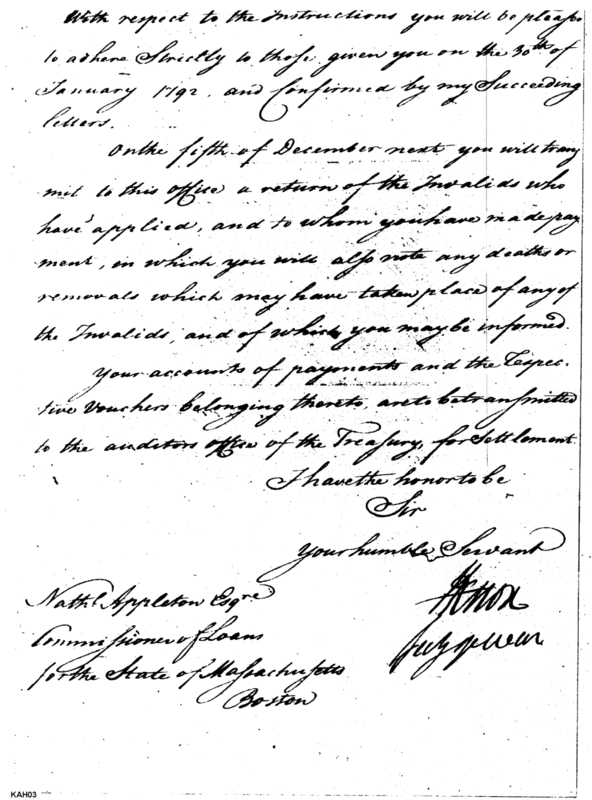 With respect to the Instructions you will be please
to adhere Strictly to those given you on the 30th of
January 1792, and Confirmed by my Succeeding
letters.
On the fifth of December next you will trans
mit to this office a return of the Invalids who
have applied, and to whom you have made pay
ment, in which you will also note any deaths or
removals which may have taken place of any of
the Invalids, and of which you may be informed.
Your accounts of payments and the respec-
tive Vouchers belonging thereto, are to be transmitted
to the auditors office of the Treasury, for Settlement.
I have the honor to be
Sir
Your humble Servant
HKnox
Secy of war
Nathl Appleton Esqre
Commissioner of Loans
for the State of Massachusetts
Boston
KAH03